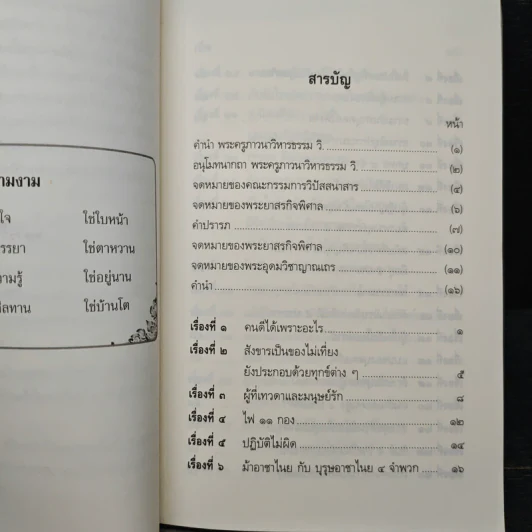 ามงาม
ใจ ใช่ใบหน้า
รรยา ใช่ตาหวาน
วามรู้ ใช่อยู่นาน
ศีลทาน ใช่บ้านโต
สารบัญ
หน้า
คำนำ พระครูภาวนาวิหารธรรม วิ. (๑)
อนุโมทนากถา พระครูภาวนาวิหารธรรม วิ. (๒)
จดหมายของคณะกรรมการวิปัสสนาสาร (๔)
จดหมายของพระยาสรกิจพิศาล (๖)
คำปรารภ (๗)
จดหมายของพระยาสรกิจพิศาล (๑๐)
จดหมายของพระอุดมวิชาญาณเถร (๑๑)
คำนำ (๑๖)
เรื่องที่ ๑ คนดีได้เพราะอะไร ๑
เรื่องที่ ๒ สังขารเป็นของไม่เที่ยง
ยังประกอบด้วยทุกข์ต่าง ๆ ๕
เรื่องที่ ๓ ผู้ที่เทวดาและมนุษย์รัก ๘
เรื่องที่ ๔ ไฟ ๑๑ กอง ๑๒
เรื่องที่ ๕ ปฏิบัติไม่ผิด ๑๔
เรื่องที่ ๖ ม้าอาชาไนย กับ บุรุษอาชาไนย ๔ จำพวก ๑๖